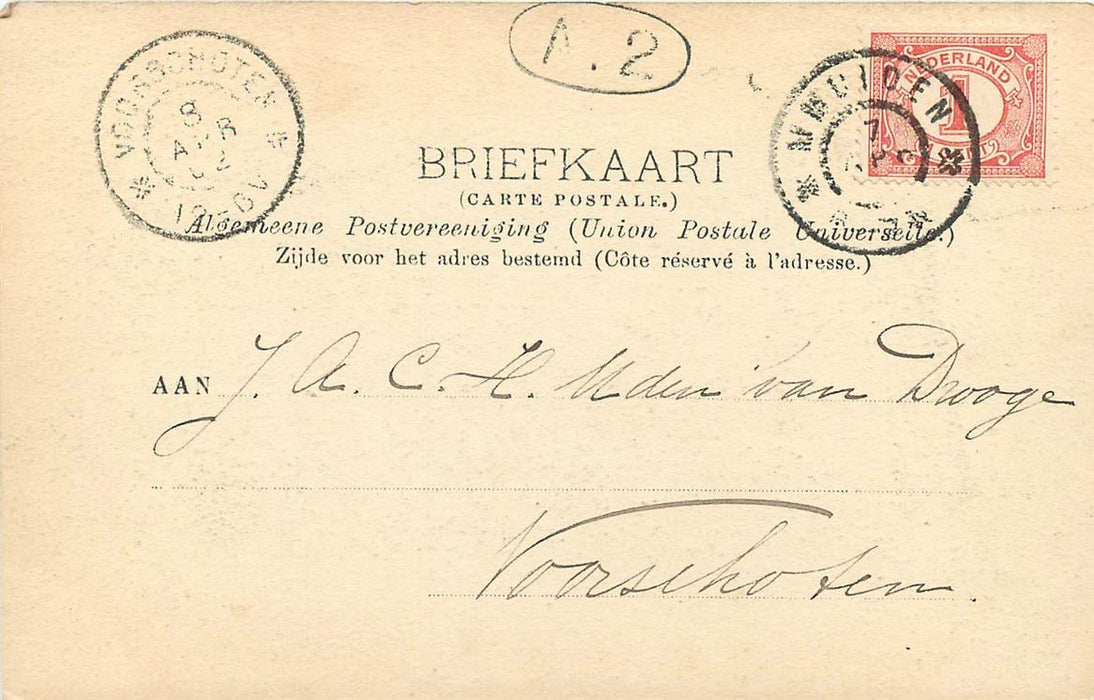 A. 2
VOORSCHOTEN
8
NEDERLAND
1
CENT
7
BRIEFKAART
(CARTE POSTALE.)
Algemeene Postvereeniging (Union Postale Universelle.)
Zijde voor het adres bestemd (Côte réservé à l'adresse.)
AAN J. A. C. H. Uden van Drooge
Voorschoten.